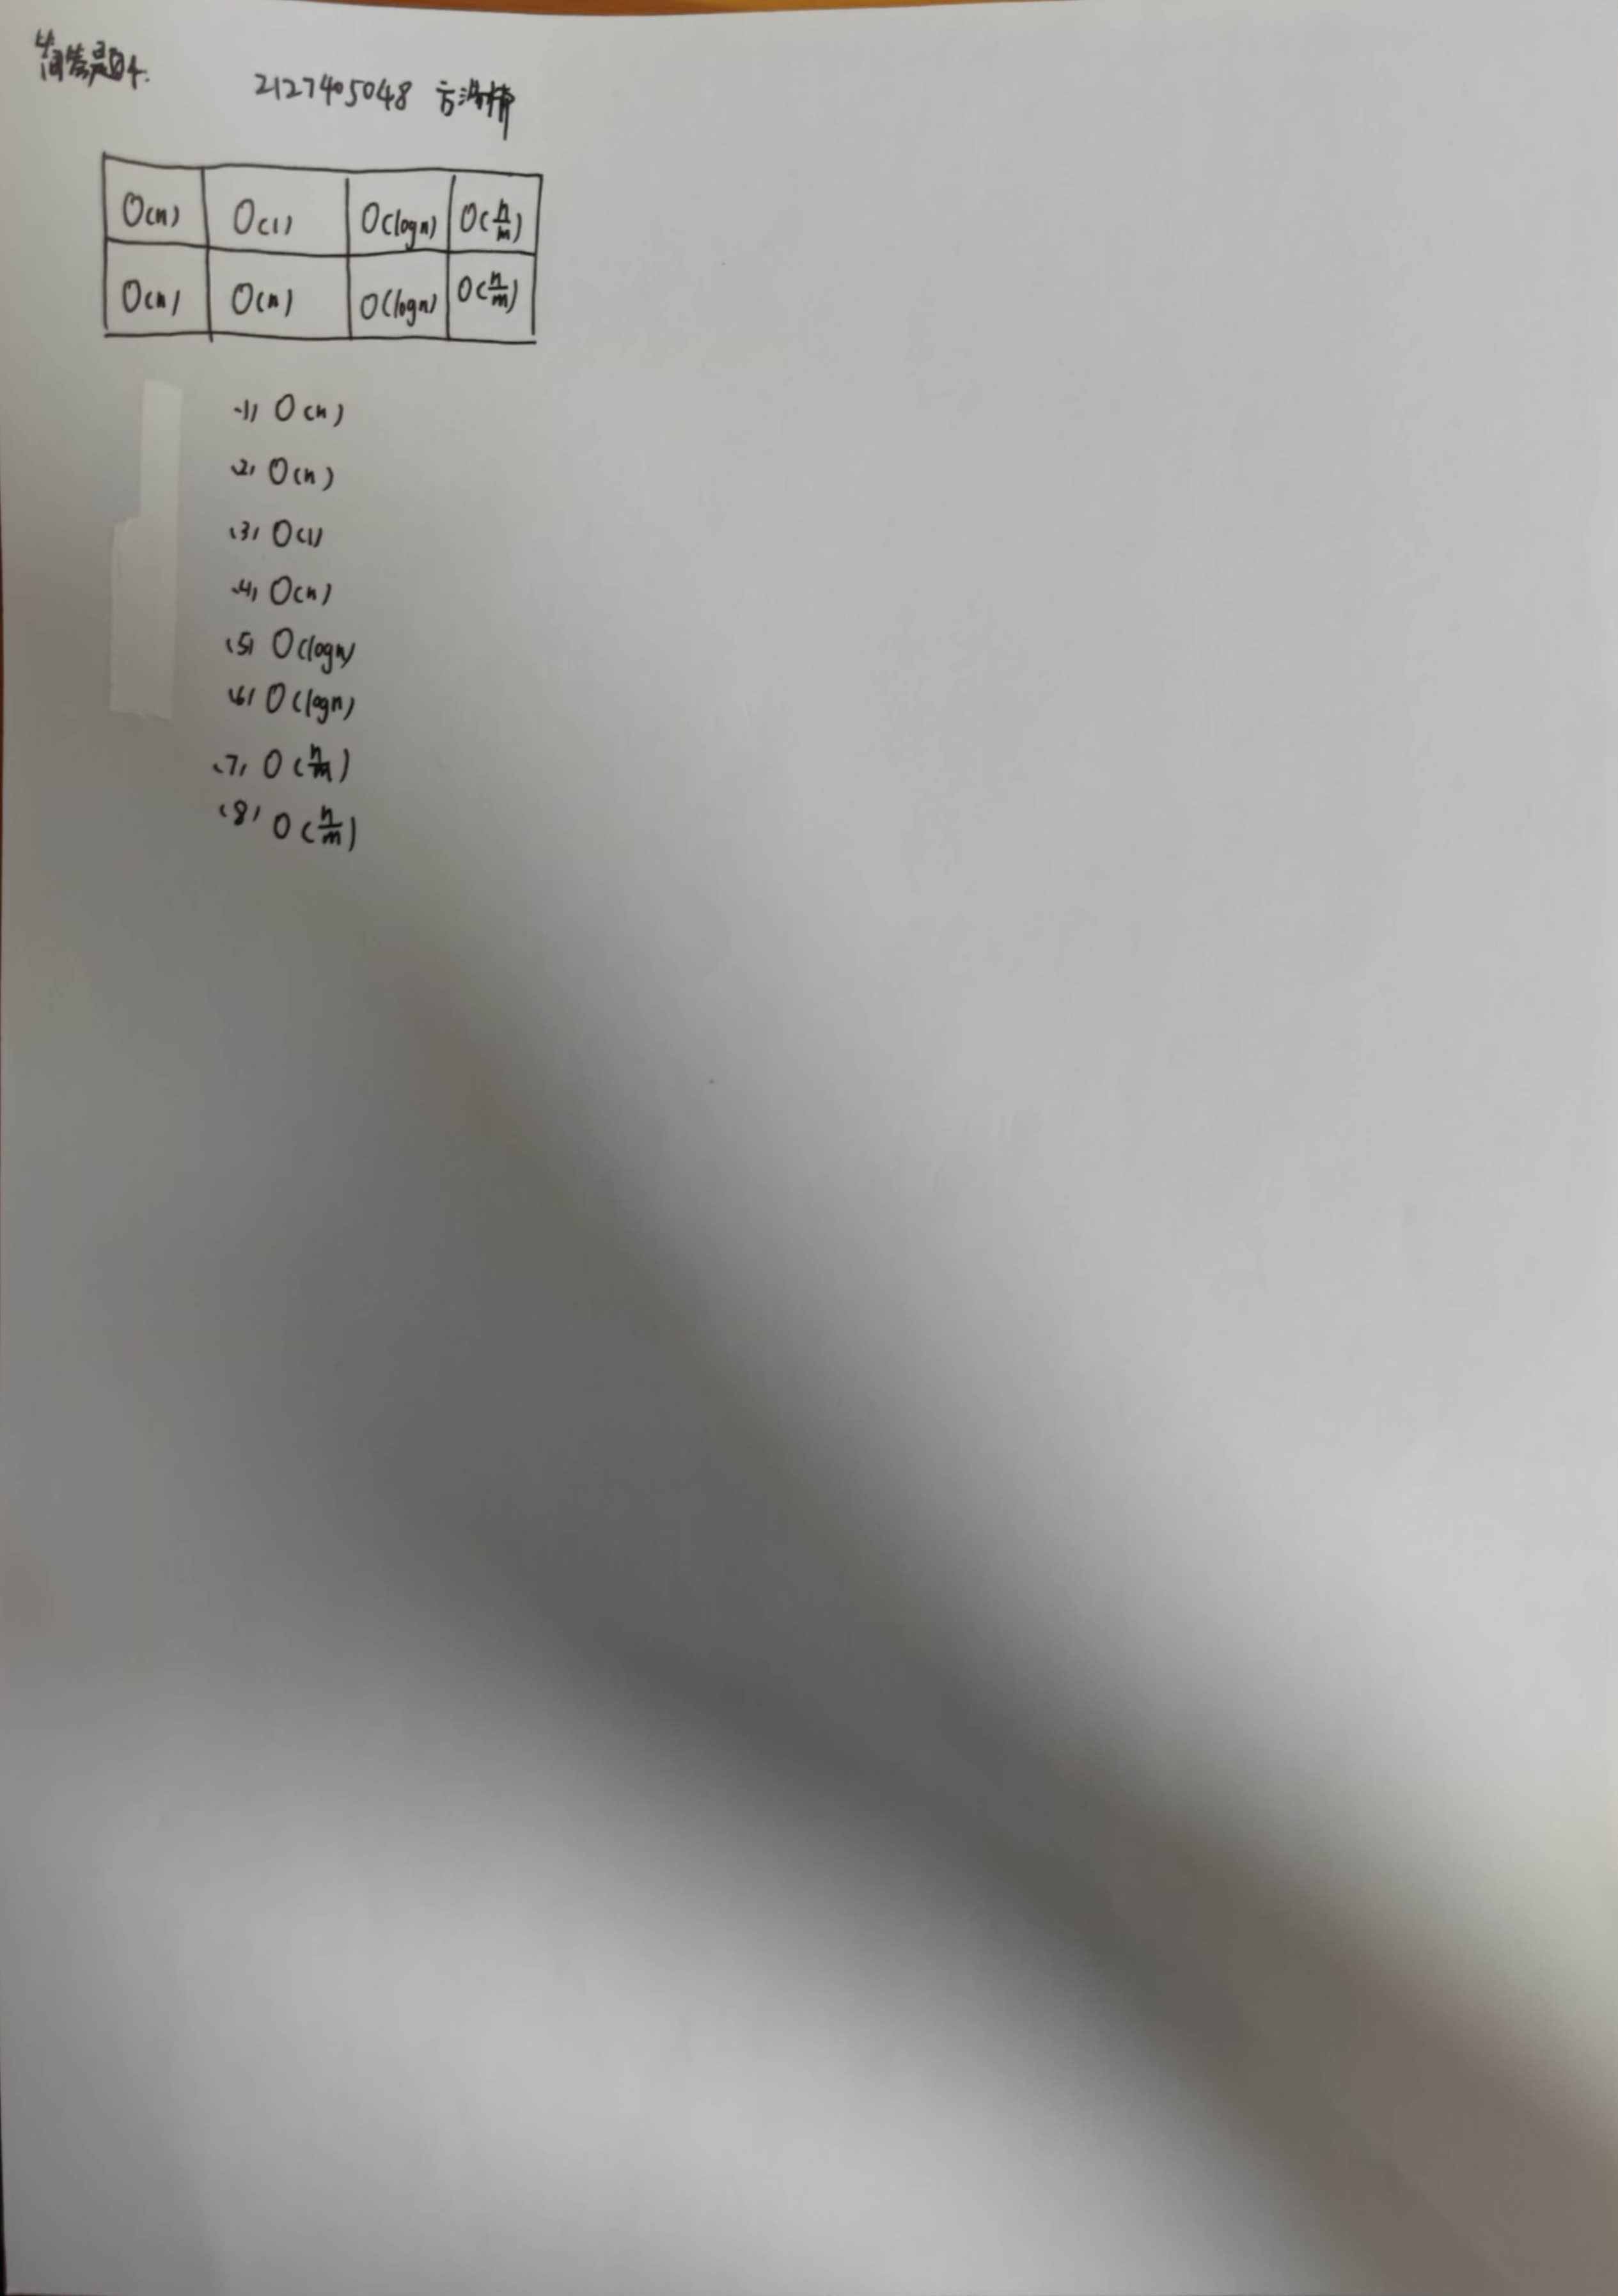 简答题4.
2127405048 方
O(n) O(1) O(logn) O(n/m)
O(n) O(n) O(logn) O(n/m)
(1) O(n)
(2) O(n)
(3) O(1)
(4) O(n)
(5) O(logn)
(6) O(logn)
(7) O(n/m)
(8) O(n/m)